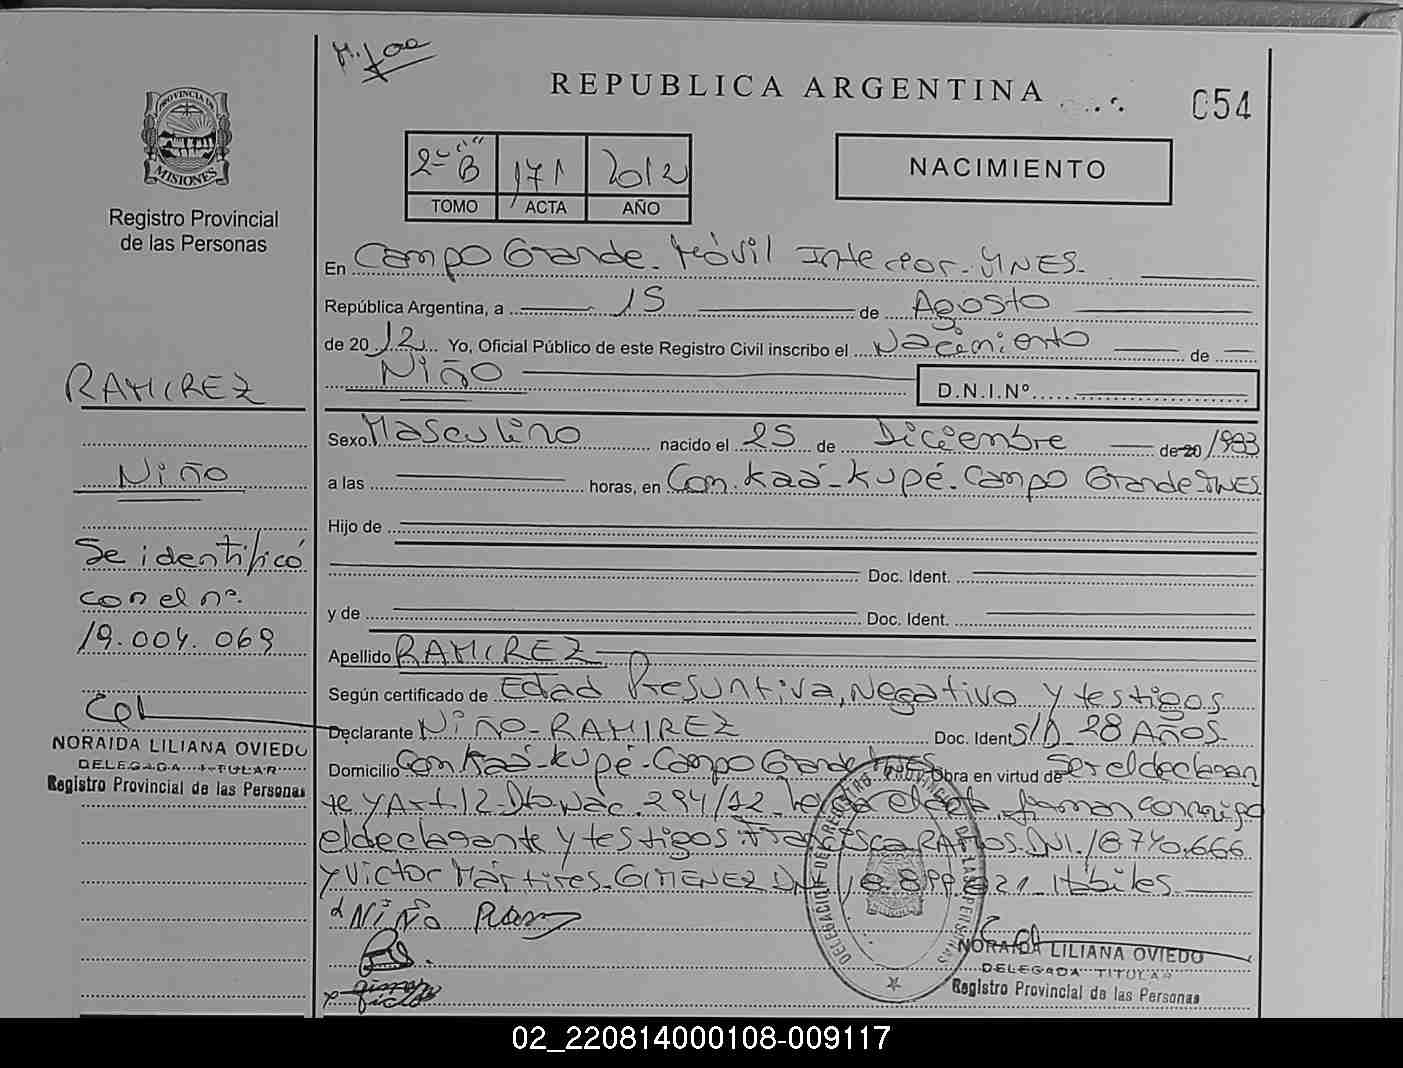 REPUBLICA ARGENTINA
054
PROVINCIA DE
MISIONES
Registro Provincial
de las Personas
2º "B" 171 2012
TOMO ACTA AÑO
NACIMIENTO
En Campo Grande. Móvil Interior. MNES.
República Argentina, a 15 de Agosto
de 2012 Yo, Oficial Público de este Registro Civil inscribo el Nacimiento de
Niño
D.N.I.Nº
Sexo Masculino nacido el 25 de Diciembre de 20 1983
a las horas, en Com. Kaá-Kupé. Campo Grande MNES
Hijo de
Doc. Ident.
y de Doc. Ident.
Apellido RAMIREZ
Según certificado de Edad Presuntiva, Negativo y testigos
Declarante NIÑO-RAMIREZ Doc. Ident S/D 28 AÑOS
Domicilio Com Kaá-Kupé-Campo Grande MNES Obra en virtud de Ser el declaran
te y Art. 12 Dto. Nac. 294/12 el acta firman conmigo
el declarante y testigos Francisca RAMOS. DNI. 18.740.666
y Victor Mártires. GIMENEZ DNI 18.899.821 Hábiles
NIÑO
NORAIDA LILIANA OVIEDO
DELEGADA TITULAR
Registro Provincial de las Personas
RAMIREZ
Niño
Se identificó
con el nº.
19.004.069
NORAIDA LILIANA OVIEDO
DELEGADA TITULAR
Registro Provincial de las Personas
02_220814000108-009117